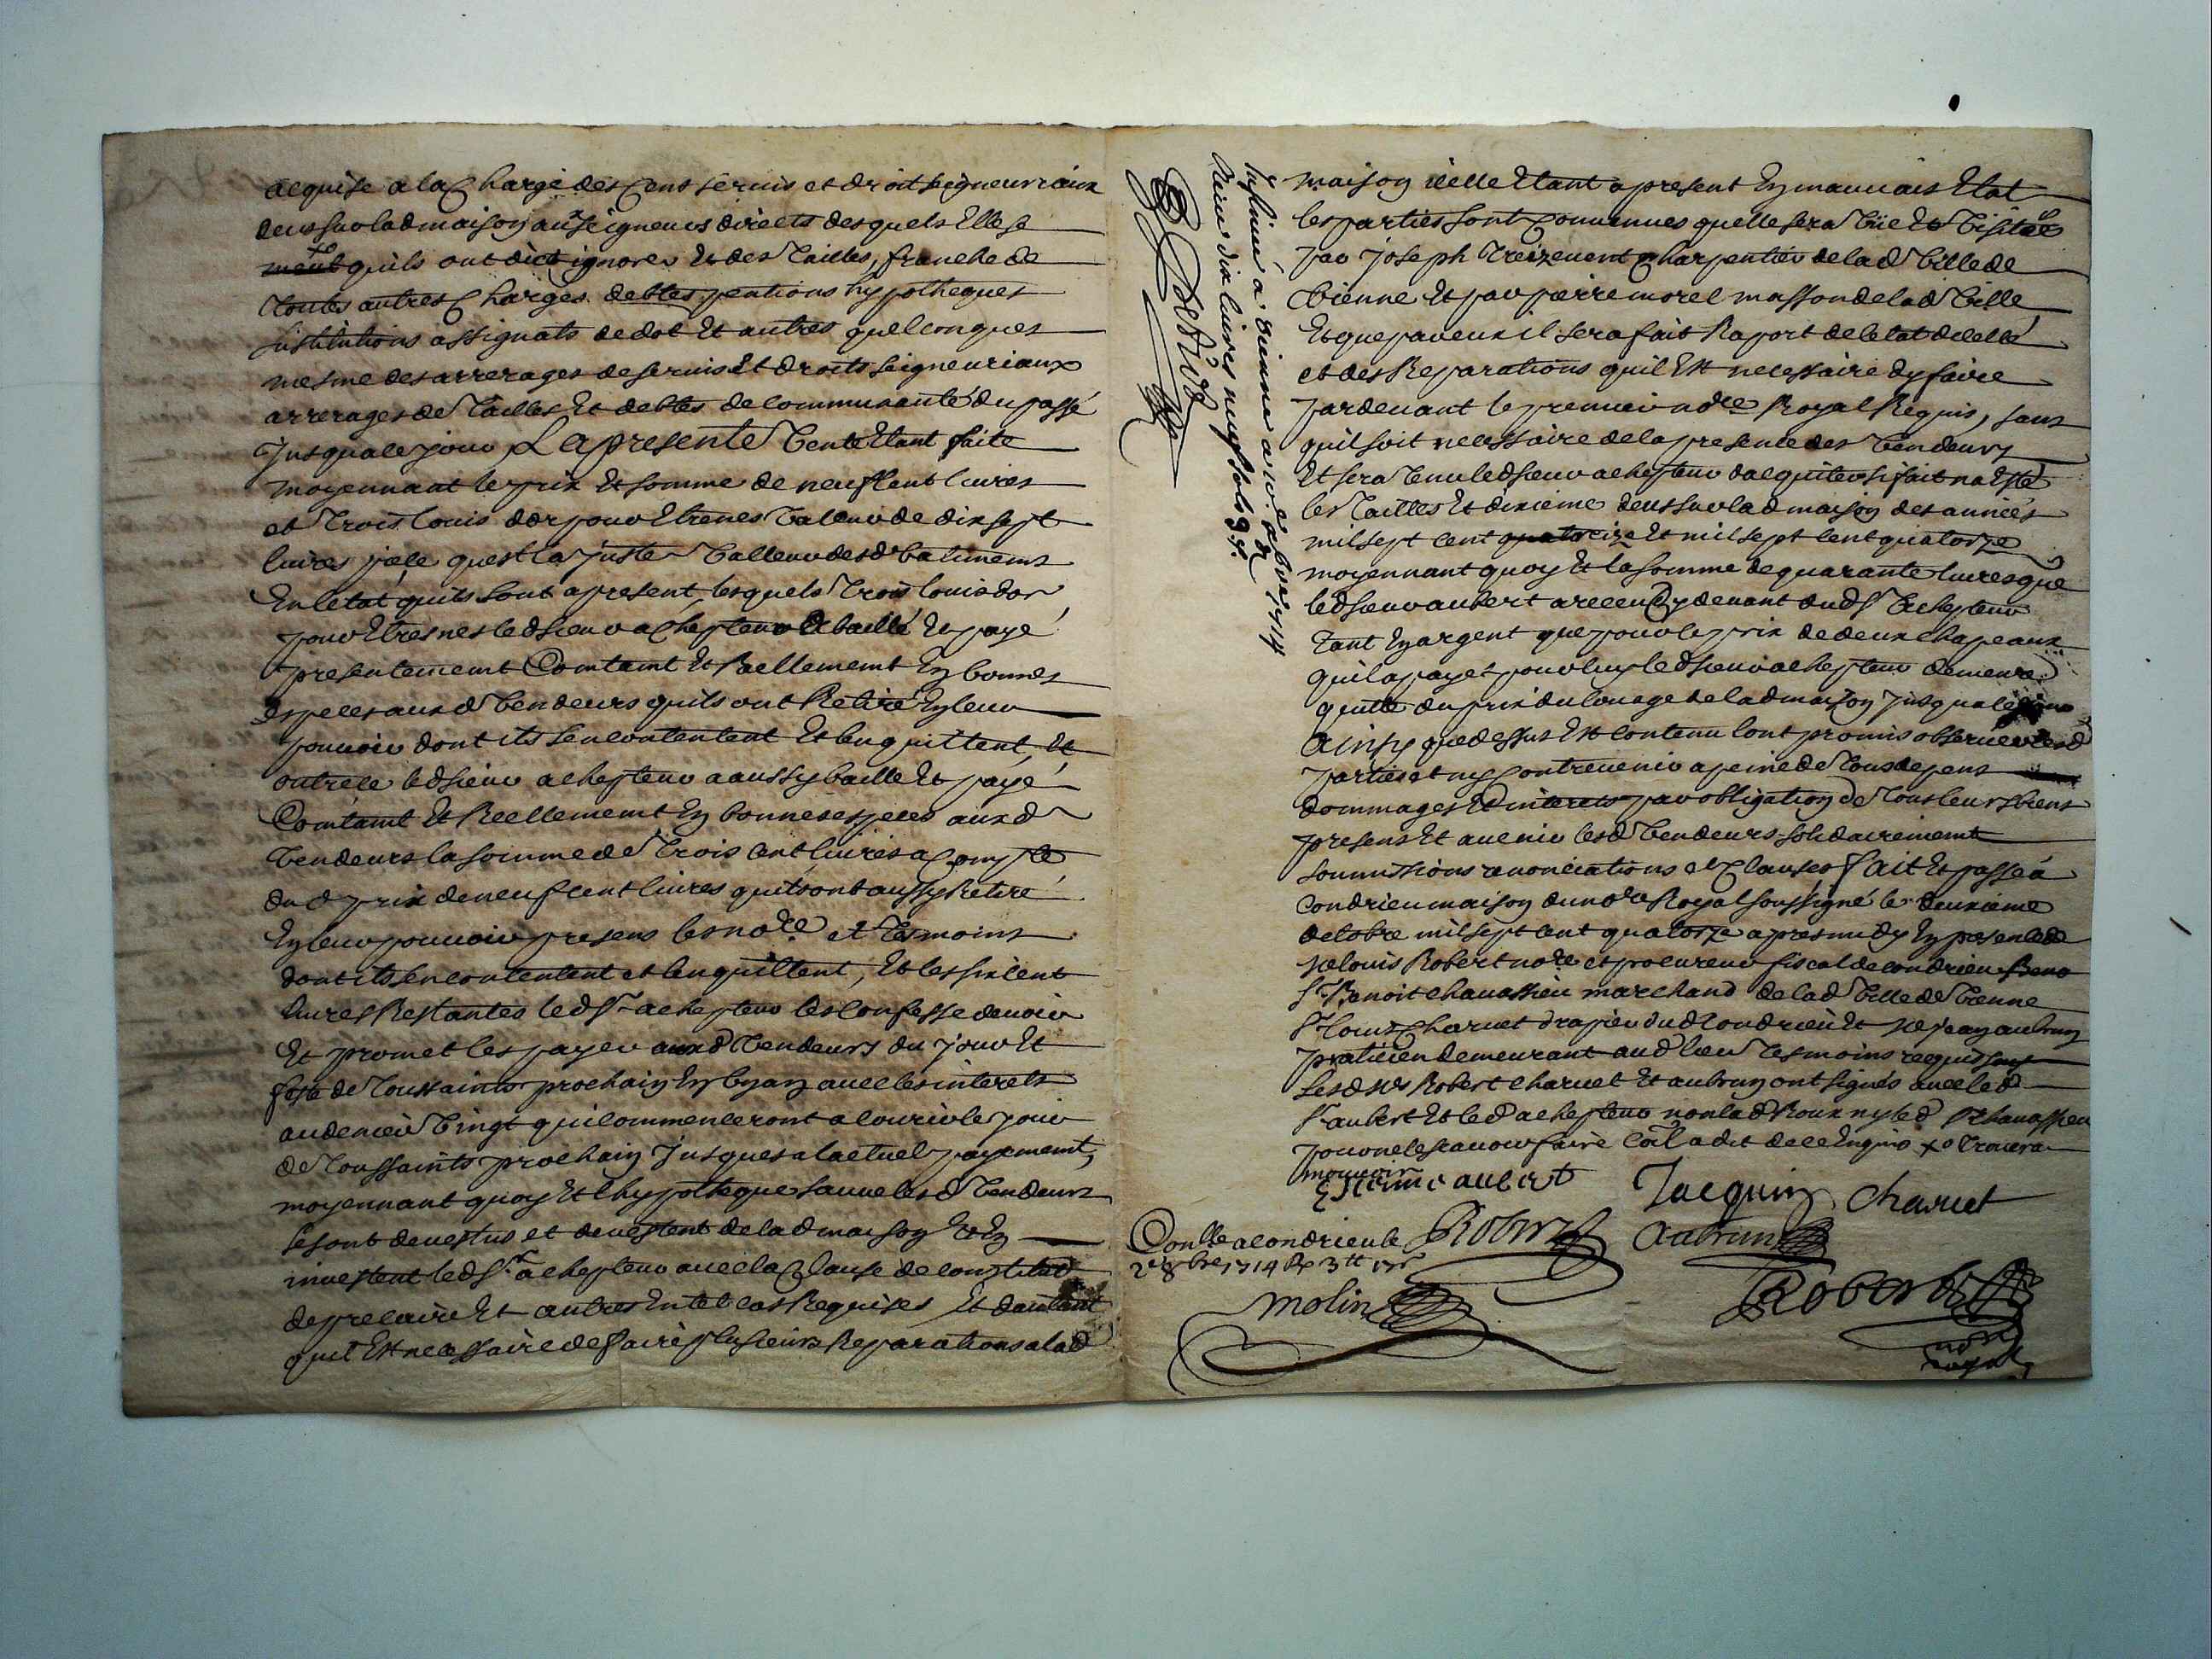 acquise a la Charge des Cens servis et droit seigneuriaux
deus sur lad maison aux seigneurs directs desquels Elle se
meut quils ont dict ignorer Et des Tailles, franche de
Toutes autres Charges debtes pentions hypotheques
substitutions assignats de dot Et autres quelconques
mesme des arrerages de servis Et droits seigneuriaux
arrerages de Tailles Et debtes de communauté du passé
Jusqua ce jour La presente Vente Etant faite
moyennant le prix Et somme de neuf Cent livres
et Trois louis dor pour Etrenes Valeur de dix sept
livres piece quest la juste Valleur desd batimens
En letat quils sont a present, lesquels Trois louis dor
pour Etresnes led sieur achepteur a baillé Et payé
presentement Comtamt Et Reellement En bonnes
Especes auxd Vendeurs quils ont Retiré En leur
pouvoir dont ils sen contentent Et len quittent, Et
outre ce led sieur achepteur a aussy baille Et payé
Comtamt Et Reellement En bonnes especes auxd
Vendeurs la somme de Trois Cent livres a Compte
dud prix de neuf cent livres quils ont aussy Retiré
En leur pouvoir presens les nore et Tesmoins
dont ils sen contentent et len quittent, Et les six cent
livres Restantes led Sr achepteur les Confesse devoir
Et promet les payer auxd Vendeurs du jour Et
feste de Toussaints prochain En Un an avec les interets
au denier Vingt qui commenceront a courir le jour
de Toussaints prochain Jusques a lactuel payement,
moyennant quoy Et lhypotheque sauve lesd Vendeurs
se sont devestus et devestent de lad maison Et En
investent led Sr achepteur avec la Clause de constitut
de precaire Et autres En tel cas Requises Et dautant
quil Est necessaire de faire plusieurs Reparations a lad
maison icelle Etant a present En mauvais Etat
les parties sont Convenues quelle sera Vüe Et Visitée
par Joseph Treizenent Charpentier de lad Ville de
Vienne Et par pierre morel masson de lad Ville
Et que par eux il sera fait Raport de letat dicelle
et des Reparations quil Est necessaire dy faire
pardevant le premier nore Royal Requis, sans
quil soit necessaire de la presence des Vendeurs
Et sera Tenu led sieur achepteur dacquiter si fait na Esté
les Tailles Et dixieme deus sur lad maison des années
mil sept cent Et mil sept cent quatorze
moyennant quoy Et la somme de quarante livres que
led sieur aubert a receu Cy devant dud Sr achepteur
Tant En argent que pour le prix de deux chapeaux
quil a payé pour luy led sieur achepteur demeure
quitte du prix du louage de lad maison Jusqua ce jour
Ainsy que dessus Est contenu lont promis observer lesd
parties et ny Contrevenir a peine de Tous depens
dommages Et interets par obligation de Tous leurs biens
presens Et avenir lesd Vendeurs solidairement
soumissions renonciations et Clauses fait Et passé a
Condrieu maison du nore Royal soussigné le deuxieme
octobre mil sept cent quatorze apres midy En presence de
Me louis Robert nore et procureur fiscal de condrieu
Sr Benoit chavassieu marchand de lad Ville de Vienne
Sr louis Charvet drapier dud Condrieu Et Me jean aubrun
praticien demeurant aud lieu Tesmoins requis
lesd Mes Robert charvet Et aubrun ont signés avec led
Sr aubert Et led achepteur non lad Roux ny led Sr chavassieu
pour ne le scavoir faire
Estienne aubert
Jacquin
Charvet
Conlle a condrieu le
2e 8bre 1714
Robert
Aubrun
Molin
Robert
nore
royal
Insinué a Vienne
Receu dix livres neuf sols